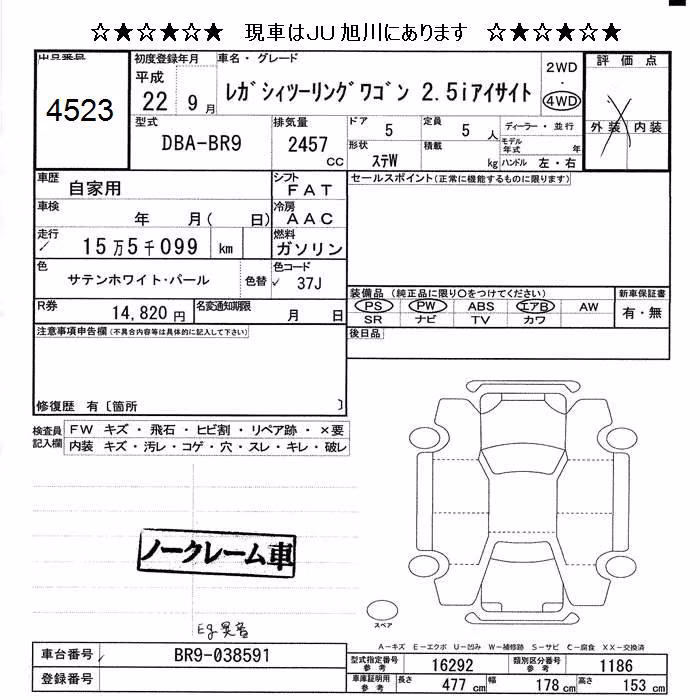 ☆★☆★☆★ 現車はJU旭川にあります ☆★☆★☆★
出品番号
4523
初度登録年月
平成
22 9月
車名・グレード
レガシィツーリングワゴン 2.5iアイサイト
2WD
・
4WD
評価点
外装 内装
型式
DBA-BR9
排気量
2457
CC
ドア 5
定員 5 人
形状 ステW
積載 kg
ディーラー・並行
モデル年式 年
ハンドル 左・右
車歴
自家用
シフト
FAT
車検
年 月( 日)
冷房
AAC
走行
15万5千099 km
燃料
ガソリン
色
サテンホワイト・パール
色替
色コード
37J
R券
14,820円
名変通知期限
月 日
セールスポイント(正常に機能するものに限ります)
装備品(純正品に限り○をつけてください)
PS PW ABS エアB AW
SR ナビ TV カワ
新車保証書
有・無
後日品
注意事項申告欄(不具合内容等は具体的に記入して下さい)
修復歴 有〔箇所 〕
検査員記入欄
FW キズ・飛石・ヒビ割・リペア跡・×要
内装 キズ・汚レ・コゲ・穴・スレ・キレ・破レ
ノークレーム車
Eg異音
スペア
A-キズ E-エクボ U-凹み W-補修跡 S-サビ C-腐食 XX-交換済
車台番号
BR9-038591
登録番号
型式指定番号参考
16292
類別区分番号参考
1186
車庫証明用参考
長さ 477cm
幅 178cm
高さ 153cm